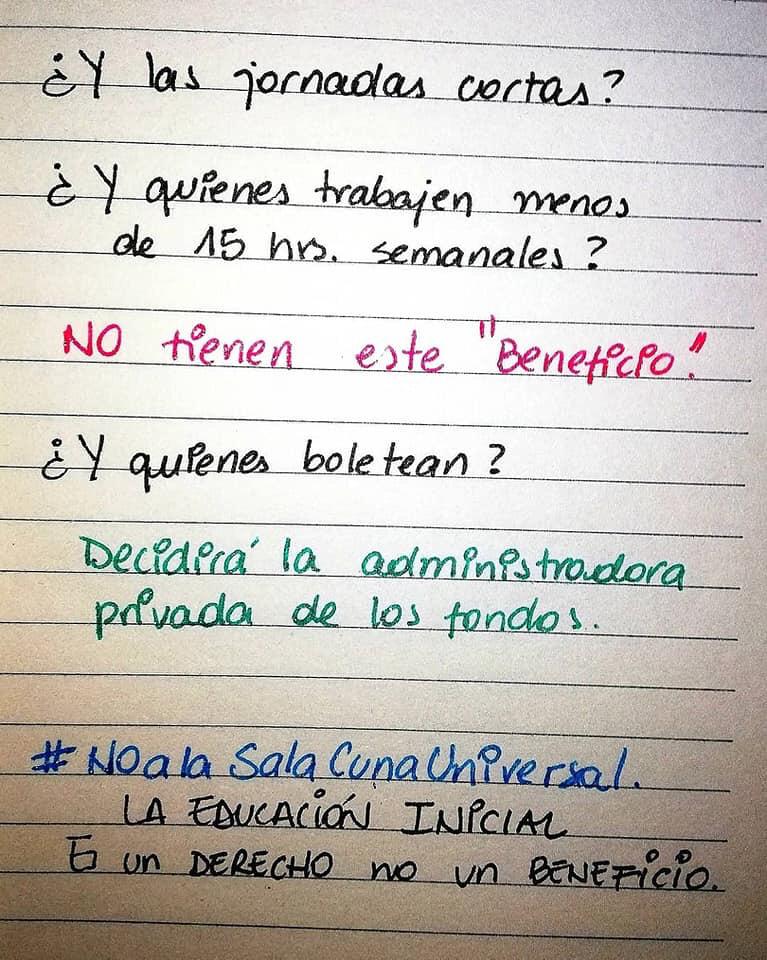 ¿Y las jornadas cortas?
¿Y quienes trabajen menos
de 15 hrs. semanales?
NO tienen este "Beneficio"!
¿Y quienes boletean?
Decidirá la administradora
privada de los fondos.
#NoalaSalaCunaUniversal.
LA EDUCACIÓN INICIAL
ES un DERECHO no un BENEFICIO.